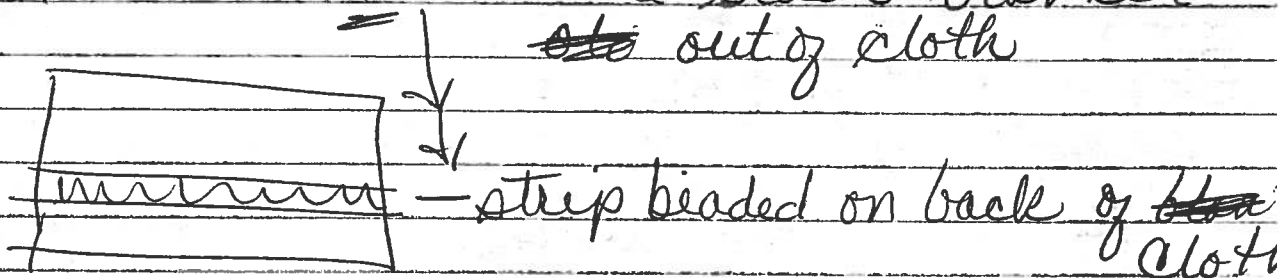 out of cloth
— strip beaded on back of
cloth